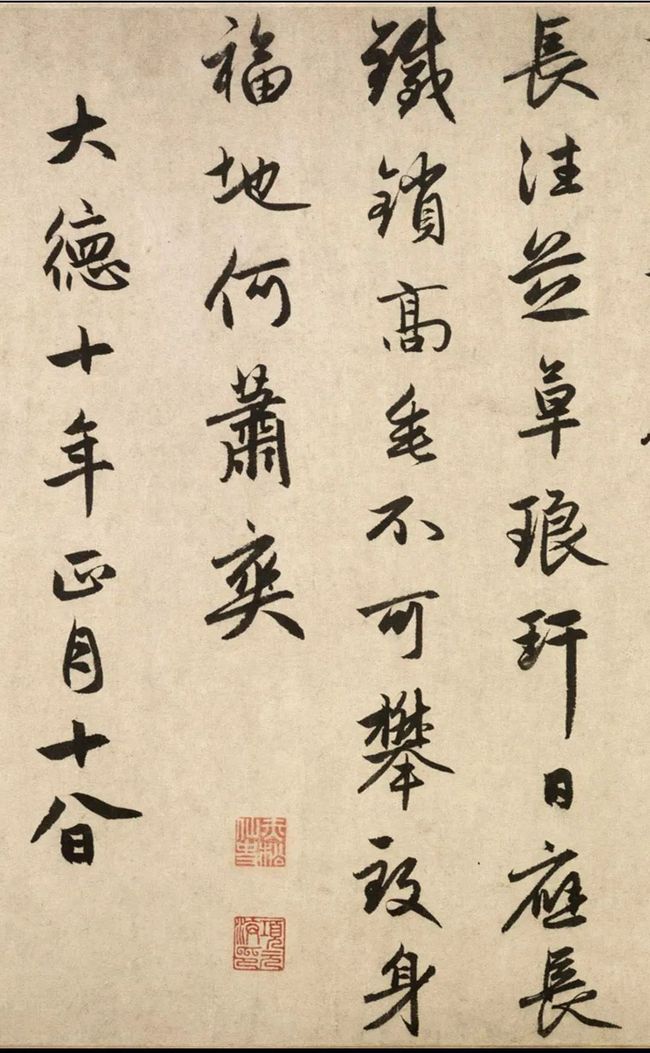 長往芝草琅玕日應長
鐵鎖高垂不可攀致身
福地何蕭爽
大德十年正月十八日